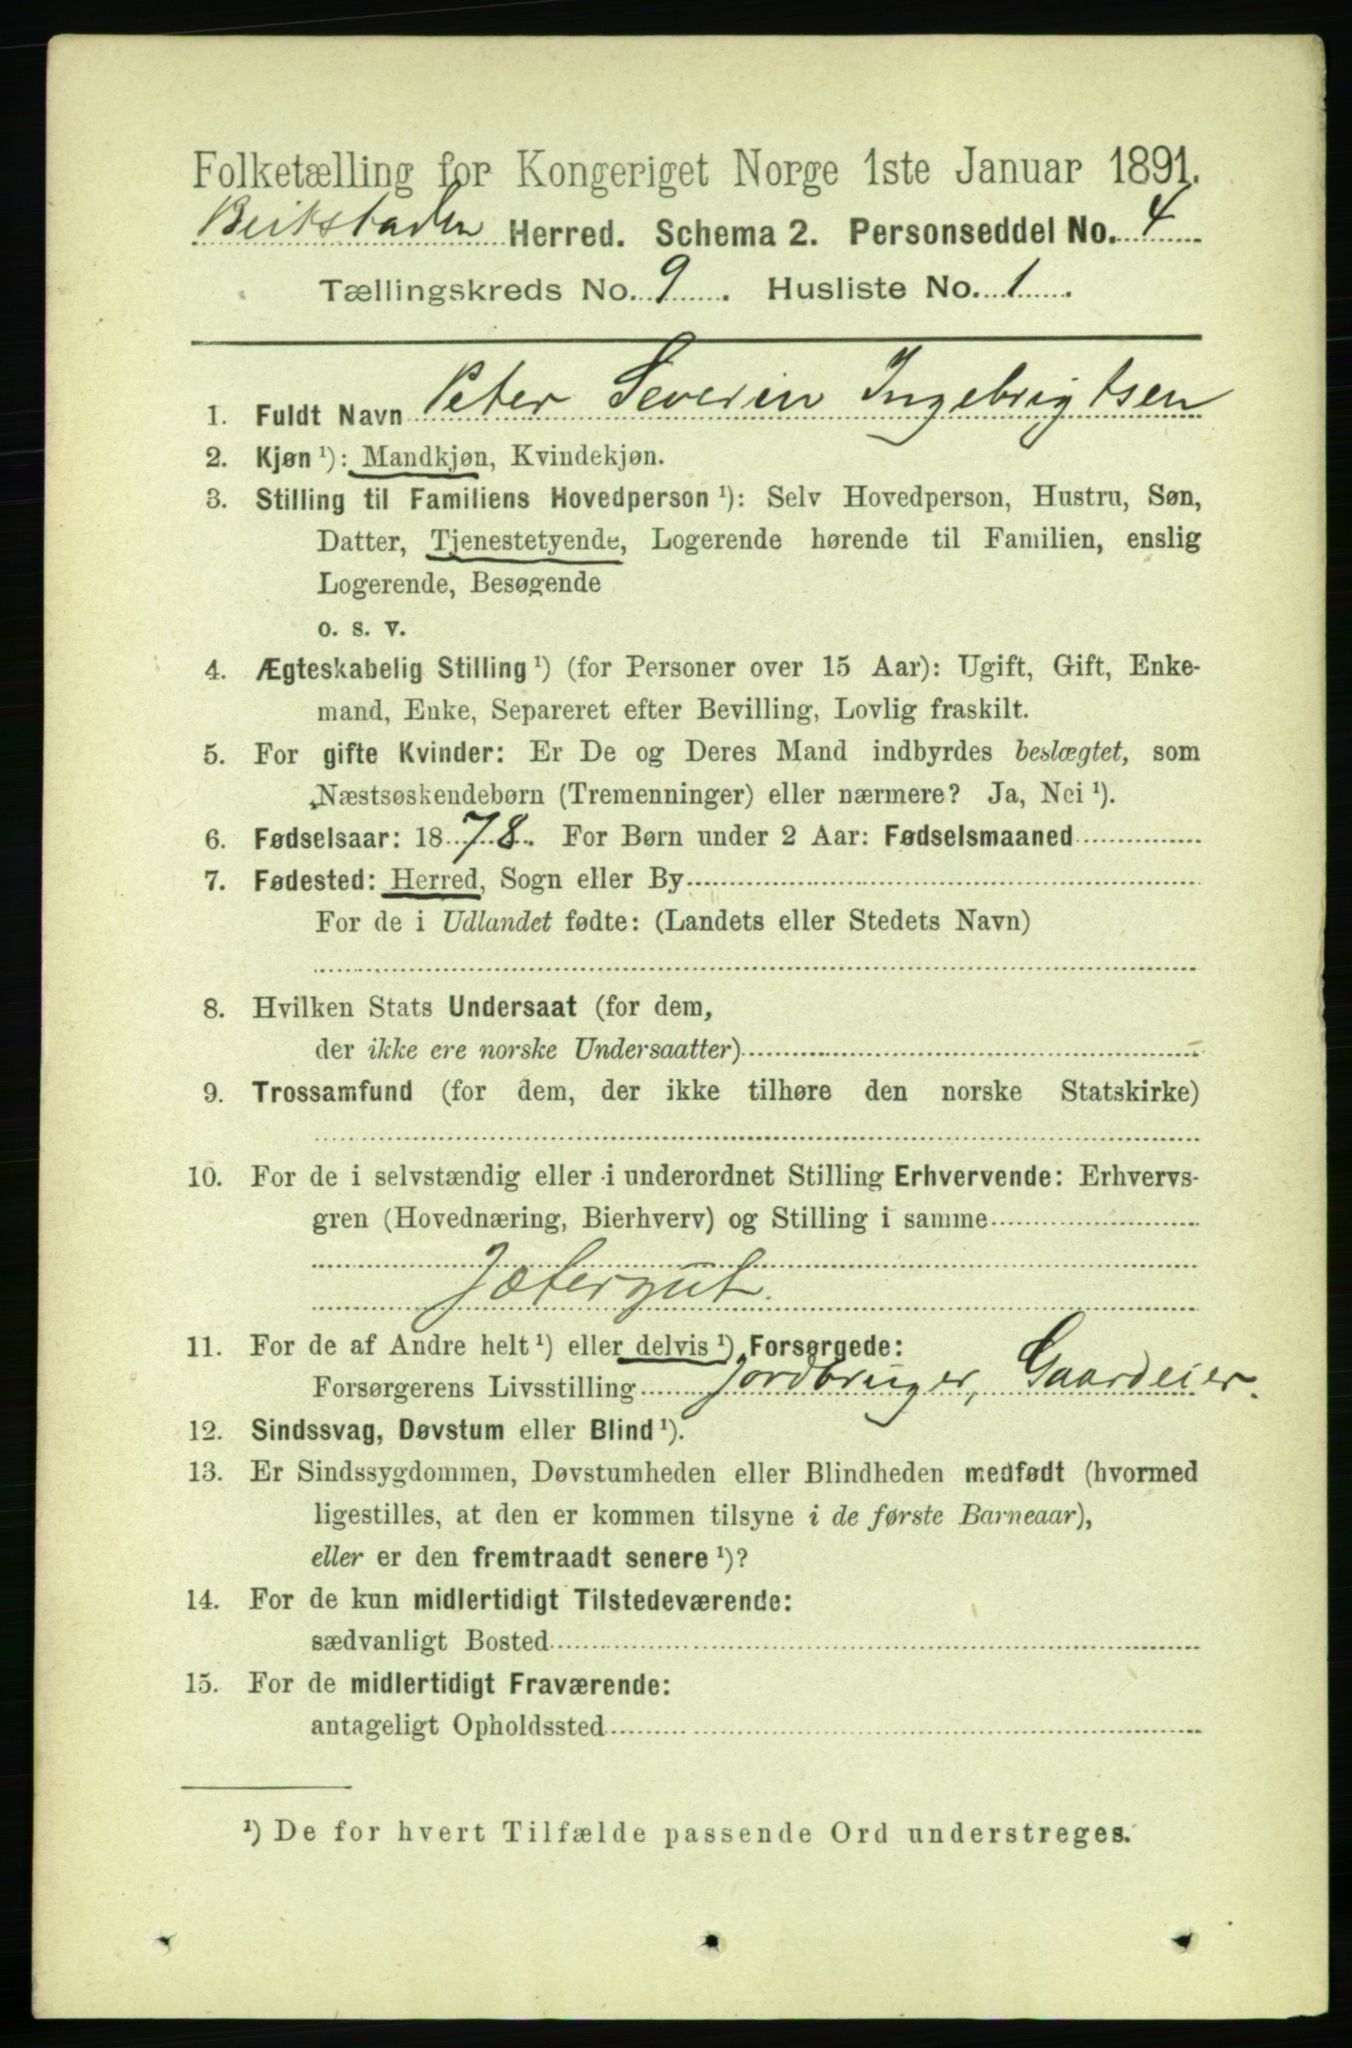 Folketælling for Kongeriget Norge 1ste Januar 1891.
Beitstaden Herred. Schema 2. Personseddel No. 4
Tællingskreds No. 9. Husliste No. 1.
1. Fuldt Navn Peter Severin Ingebrigtsen
2. Kjøn ¹): Mandkjøn, Kvindekjøn.
3. Stilling til Familiens Hovedperson ¹): Selv Hovedperson, Hustru, Søn,
Datter, Tjenestetyende, Logerende hørende til Familien, enslig
Logerende, Besøgende
o. s. v.
4. Ægteskabelig Stilling ¹) (for Personer over 15 Aar): Ugift, Gift, Enke-
mand, Enke, Separeret efter Bevilling, Lovlig fraskilt.
5. For gifte Kvinder: Er De og Deres Mand indbyrdes beslægtet, som
Næstsøskendebørn (Tremenninger) eller nærmere? Ja, Nei ¹).
6. Fødselsaar: 1878. For Børn under 2 Aar: Fødselsmaaned
7. Fødested: Herred, Sogn eller By
For de i Udlandet fødte: (Landets eller Stedets Navn)
8. Hvilken Stats Undersaat (for dem,
der ikke ere norske Undersaatter)
9. Trossamfund (for dem, der ikke tilhøre den norske Statskirke)
10. For de i selvstændig eller i underordnet Stilling Erhvervende: Erhvervs-
gren (Hovednæring, Bierhverv) og Stilling i samme
Jætergut.
11. For de af Andre helt ¹) eller delvis ¹) Forsørgede:
Forsørgerens Livsstilling Jordbruger, Gaardeier.
12. Sindssvag, Døvstum eller Blind ¹).
13. Er Sindssygdommen, Døvstumheden eller Blindheden medfødt (hvormed
ligestilles, at den er kommen tilsyne i de første Barneaar),
eller er den fremtraadt senere ¹)?
14. For de kun midlertidigt Tilstedeværende:
sædvanligt Bosted
15. For de midlertidigt Fraværende:
antageligt Opholdssted
¹) De for hvert Tilfælde passende Ord understreges.